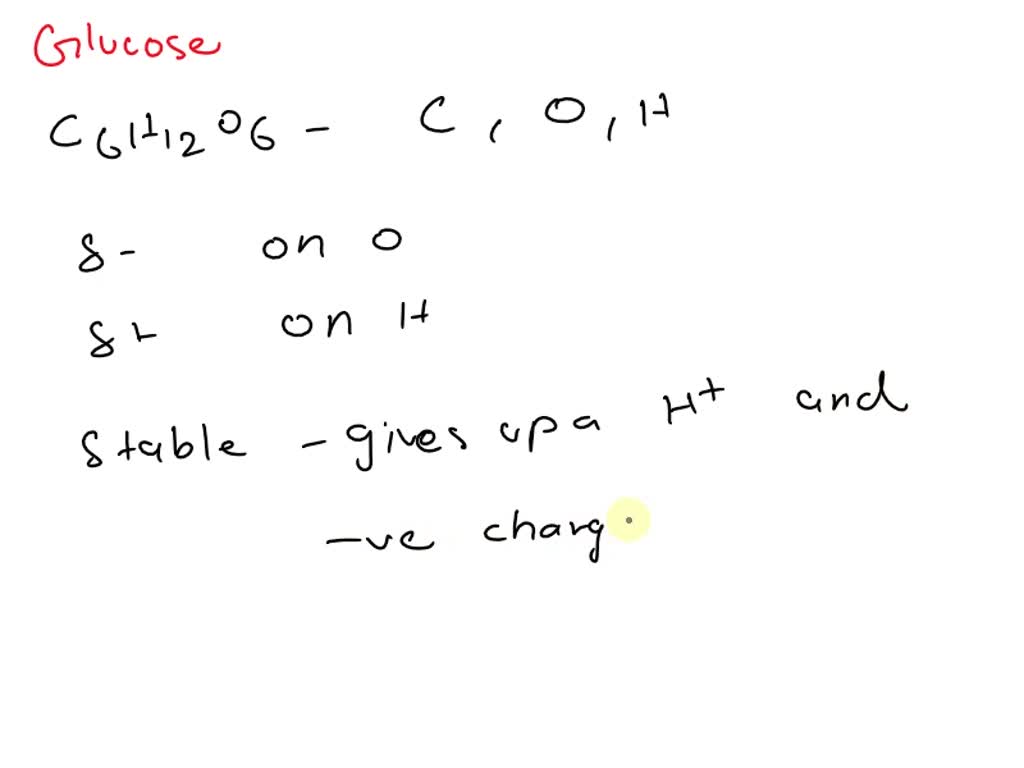 Glucose
C6H12O6 - C, O, H
δ- on O
δ+ on H
Stable - gives up a H+ and
-ve charg